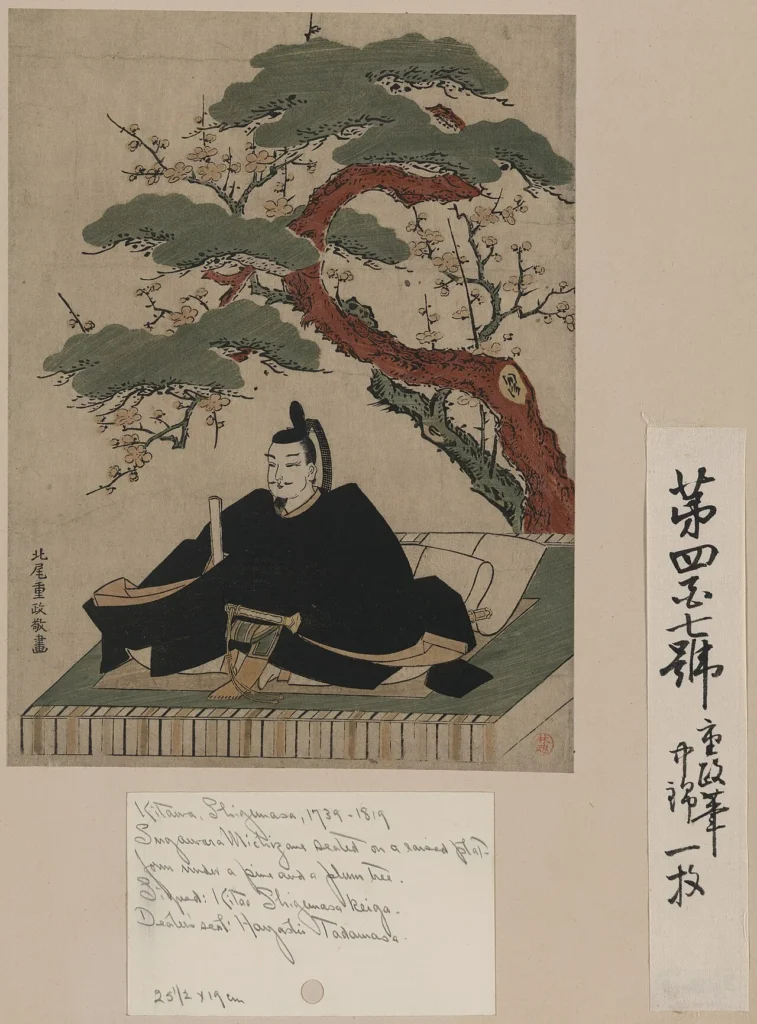 北尾重政敬畫
第四百七號
重政筆
中錦
一枚
Kitawo, Shigemasa, 1739-1819
Sugawara Michizane seated on a raised plat-
form under a pine and a plum tree.
Signed: Kitao Shigemasa keiga.
Dealer's seal: Hayashi Tadamasa.
25 1/2 x 19 cm